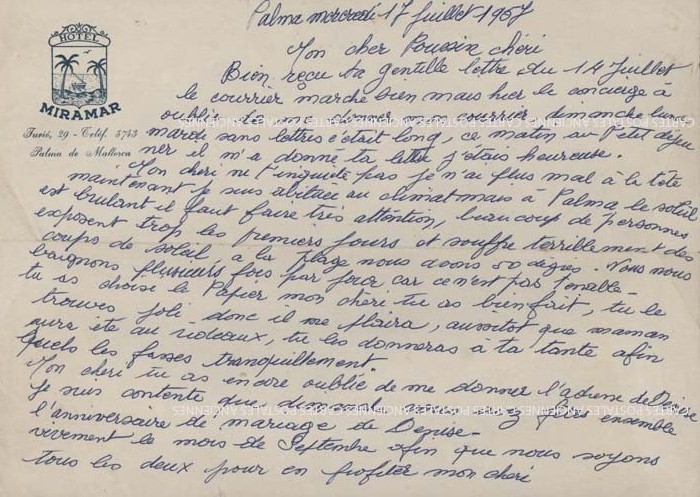 Palma mercredi 17 juillet 1967
HOTEL
MIRAMAR
Turis, 29 - Telif. 3743
Palma de Mallorca
Mon cher Poussin chéri
Bien reçu ta gentille lettre du 14 juillet
le courrier marche bien mais hier le concierge a
oublié de dimanche lundi
mardi sans lettres c'était long, ce matin au Petit déjeu
ner il m'a donné ta lettre j'étais heureuse.
Mon chéri ne t'inquiète pas je n'ai plus mal à la tête
maintenant je suis abituée au climat mais à Palma le soleil
est brulant il faut faire très attention, beaucoup de personnes
exposent trop les premiers jours et souffre terriblement des
coups de soleil a la plage nous avons 50 degres. Nous nous
baignons plusieurs fois par jour car ce n'est pas tenable -
tu as choisi le Papier mon chéri tu as bien fait, tu le
trouves joli donc il me plaira, aussitot que maman
aura été au rideaux, tu les donneras à ta tante afin
quels les fasses tranquillement.
Mon chéri tu as encore oublié de me donner l'adresse de Denise
Je suis contente que dimanche fêter ensemble
l'anniversaire de mariage de Denise -
vivement le mois de Septembre afin que nous soyons
tous les deux pour en profiter mon chéri
CARTES POSTALES ANCIENNES
CARTES POSTALES ANCIENNES